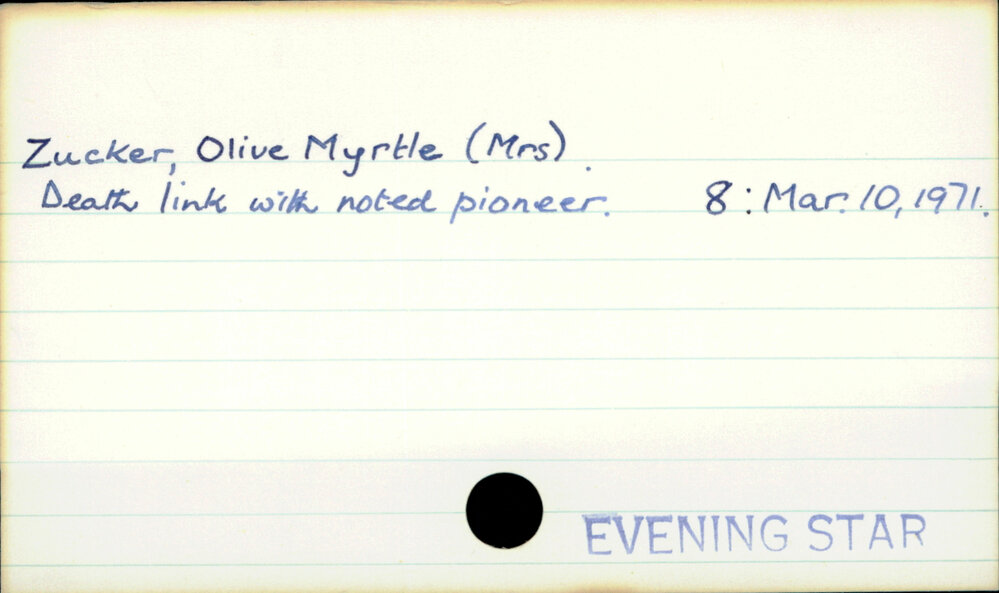 Zucker, Olive Myrtle (Mrs).
Death link with noted pioneer. 8: Mar. 10, 1971.
EVENING STAR